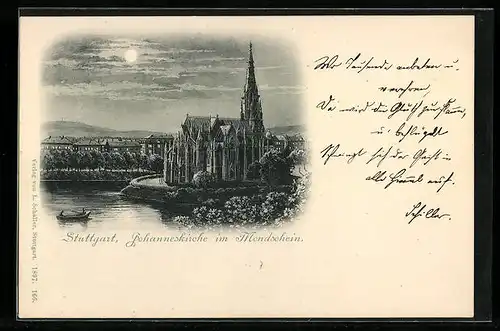 Wo Tausende anbeten u.
verehren,
Da wird die Glut zur Flamm,
u. beflügelt
Schwingt sich der Geist in
alle Himmel auf.
Schiller.
Stuttgart, Johanneskirche im Mondschein.
Verlag von L. Schaller, Stuttgart. 1897. 166.